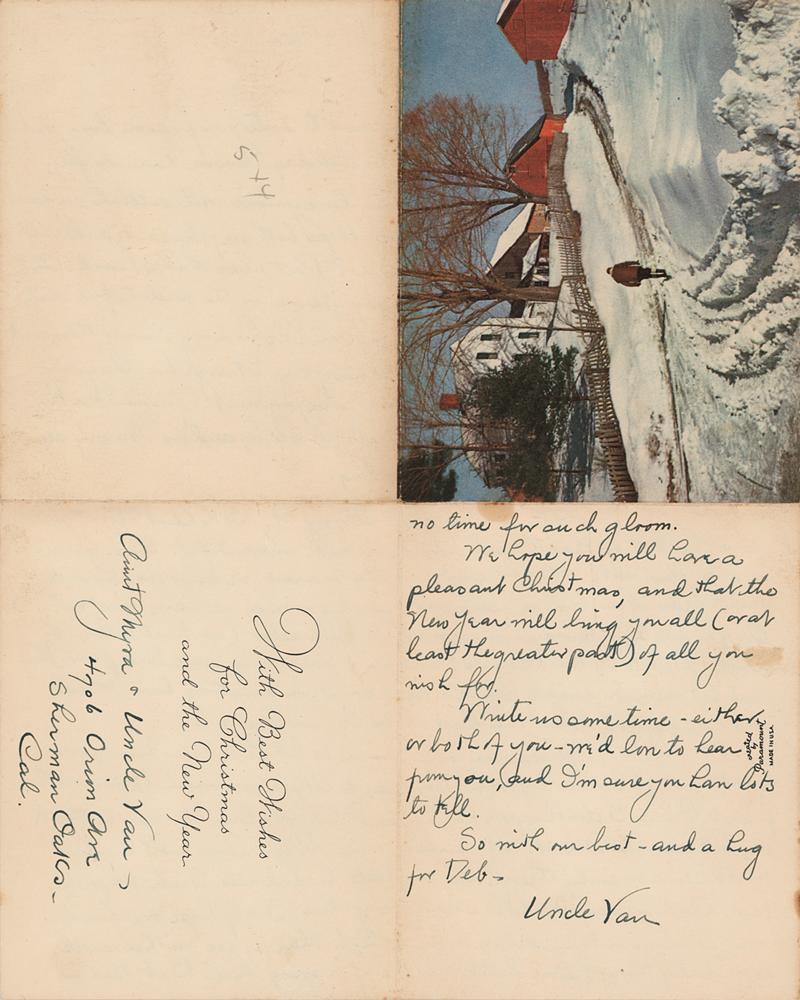 5 + 4
no time for such gloom.
We hope you will have a
pleasant Christmas, and that the
New Year will bring you all (or at
least the greater part) of all you
wish for.
Write us some time - either
or both of you - we'd love to hear
from you, and I'm sure you have lots
to tell.
So with our best - and a hug
for Deb -
Uncle Van
created
by
Paramount
MADE IN USA
With Best Wishes
for Christmas
and the New Year
Aunt Myra & Uncle Van
4706 Orion Ave
Sherman Oaks -
Cal.